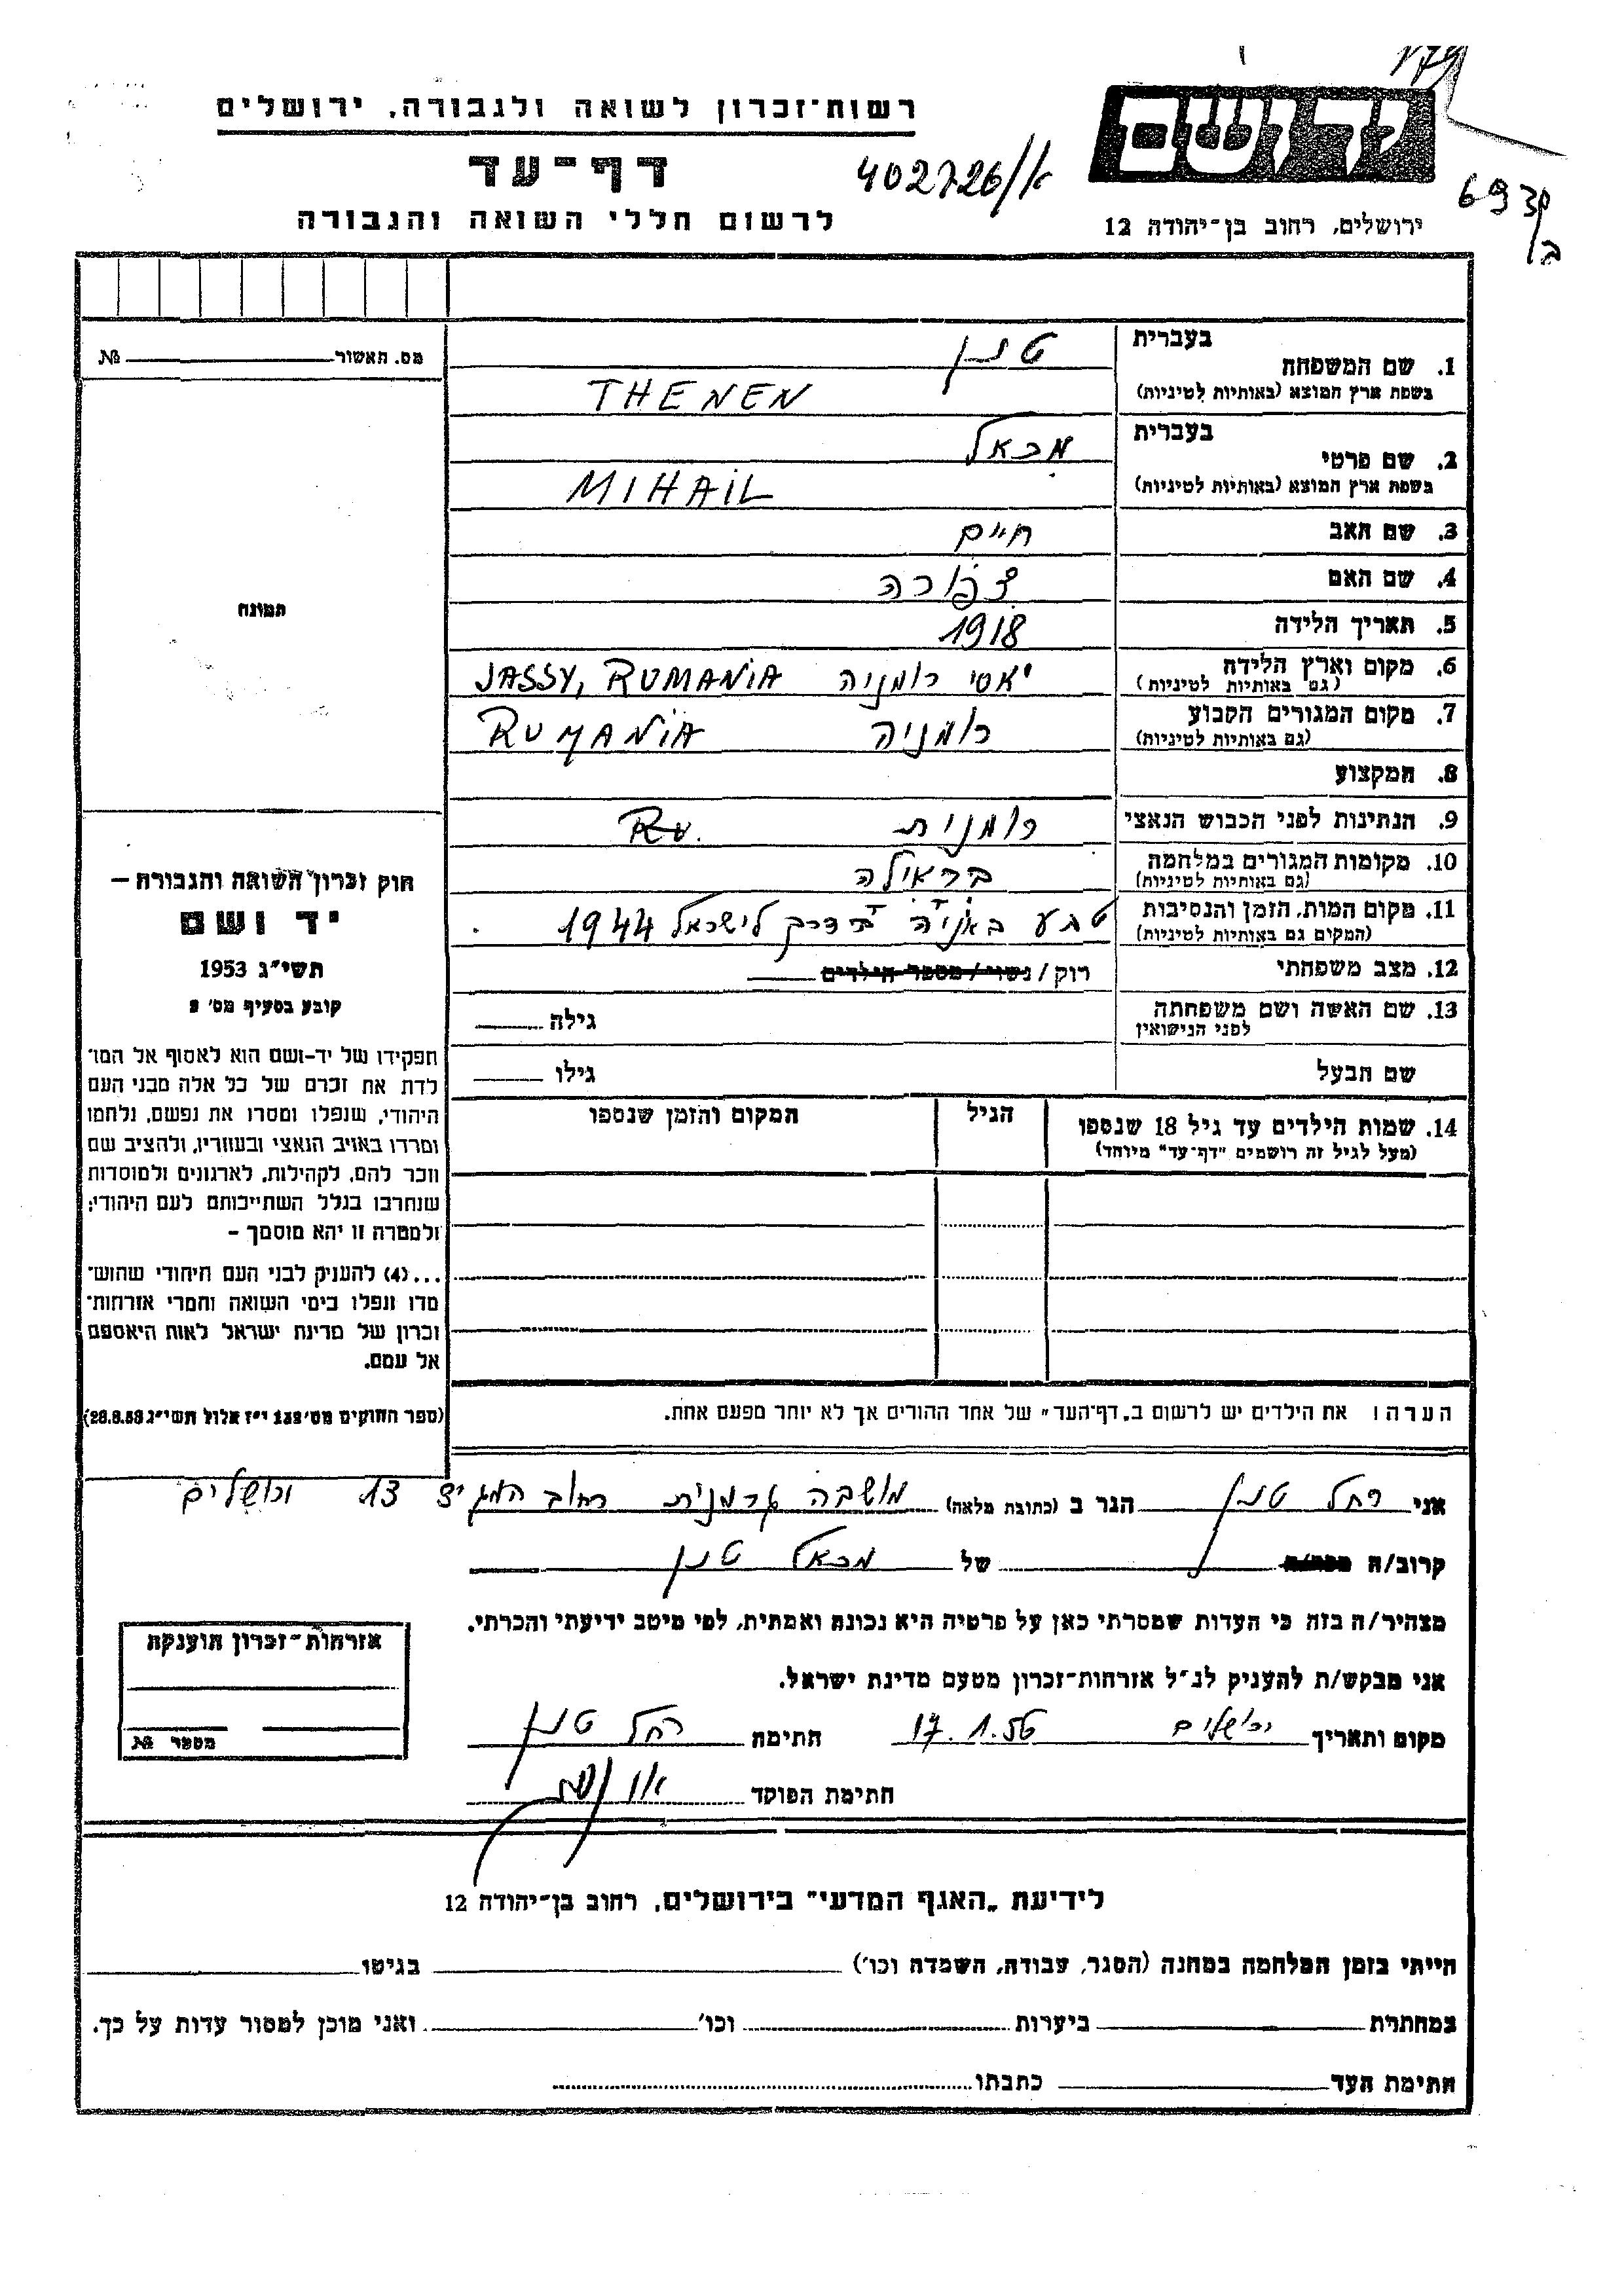 רשות־זכרון לשואה ולגבורה, ירושלים
דף־עד
לרשום חללי השואה והגבורה
402726/א
יד ושם
ירושלים, רחוב בן־יהודה 12
693
ב
מס. האשור №
תמונה
בעברית
1. שם המשפחה טנן
בשפת ארץ המוצא (באותיות לטיניות) THENEN
בעברית
2. שם פרטי מכאל
בשפת ארץ המוצא (באותיות לטיניות) MIHAIL
3. שם האב חיים
4. שם האם צפורה
5. תאריך הלידה 1918
6. מקום וארץ הלידה יאסי רומניה JASSY, RUMANIA
(גם באותיות לטיניות)
7. מקום המגורים הקבוע רומניה RUMANIA
(גם באותיות לטיניות)
8. המקצוע
9. הנתינות לפני הכבוש הנאצי רומנית Ru.
10. מקומות המגורים במלחמה בראילה
(גם באותיות לטיניות)
11. מקום המות, הזמן והנסיבות טבע באניה בדרך לישראל 1944
(המקום גם באותיות לטיניות)
12. מצב משפחתי רוק / נשוי / מספר הילדים
13. שם האשה ושם משפחתה גילה
לפני הנישואין
שם הבעל גילו
14. שמות הילדים עד גיל 18 שנספו הגיל המקום והזמן שנספו
(מעל לגיל זה רושמים "דף־עד" מיוחד)
הערה: את הילדים יש לרשום ב„דף־העד" של אחד ההורים אך לא יותר מפעם אחת.
חוק זכרון השואה והגבורה –
יד ושם
תשי"ג 1953
קובע בסעיף מס' 2
תפקידו של יד-ושם הוא לאסוף אל המו־
לדת את זכרם של כל אלה מבני העם
היהודי, שנפלו ומסרו את נפשם, נלחמו
ומרדו באויב הנאצי ובעוזריו, ולהציב שם
וזכר להם, לקהילות, לארגונים ולמוסדות
שנחרבו בגלל השתייכותם לעם היהודי;
ולמטרה זו יהא מוסמך –
...(4) להעניק לבני העם היהודי שהוש־
מדו ונפלו בימי השואה והמרי אזרחות־
זכרון של מדינת ישראל לאות היאספם
אל עמם.
(ספר החוקים מס' 132 י"ז אלול תשי"ג 28.8.53)
אני רחל טנן הגר ב (כתובת מלאה) מושבה גרמנית רחוב המגיד 13 ירושלים
קרוב/ה מכר/ה של מכאל טנן
מצהיר/ה בזה כי העדות שמסרתי כאן על פרטיה היא נכונה ואמתית, לפי מיטב ידיעתי והכרתי.
אני מבקש/ת להעניק לנ"ל אזרחות־זכרון מטעם מדינת ישראל.
מקום ותאריך ירושלים 17.1.56 חתימה רחל טנן
חתימת הפוקד
אזרחות־זכרון הוענקה
מספר №
לידיעת „האגף המדעי" בירושלים, רחוב בן־יהודה 12
הייתי בזמן המלחמה במחנה (הסגר, עבודה, השמדה וכו') בגיטו
במחתרת ביערות וכו' ואני מוכן למסור עדות על כך.
חתימת העד כתבתו